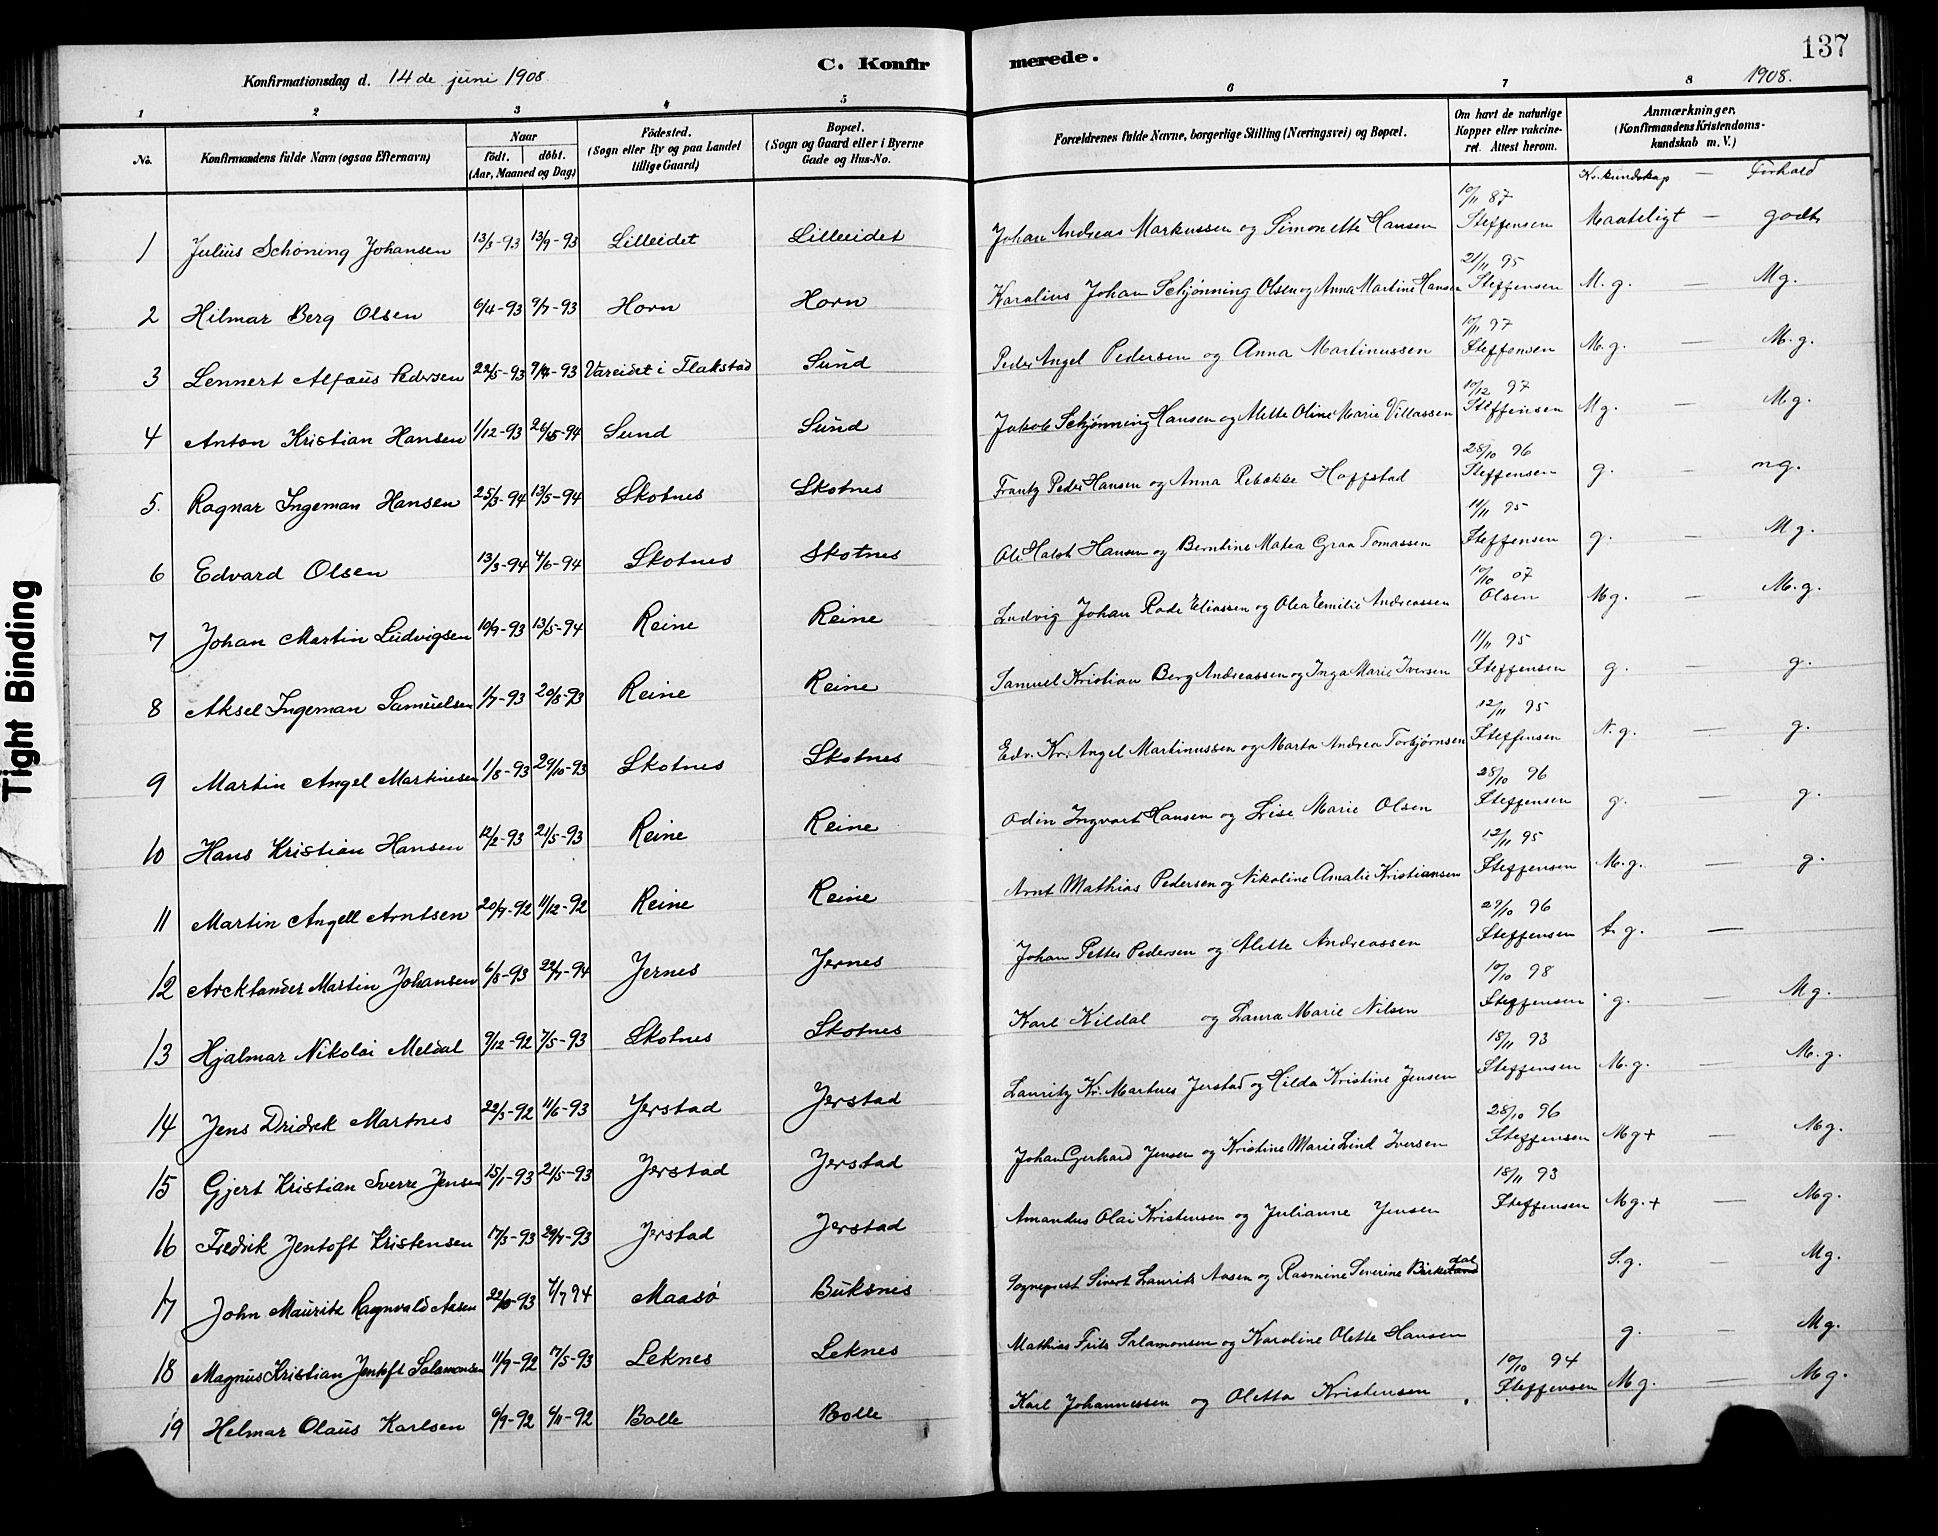 137
C. Konfirmerede.
Konfirmationsdag d. 14 de juni 1908
1908.
1 2 3 4 5 6 7 8
No. Konfirmandens fulde Navn (ogsaa Efternavn) Naar födt. döbt. (Aar, Maaned og Dag) Födested. (Sogn eller By og paa Landet tillige Gaard) Bopæl. (Sogn og Gaard eller i Byerne Gade og Hus-No. Forældrenes fulde Navne, borgerlige Stilling (Næringsvei) og Bopæl. Om havt de naturlige Kopper eller vakcineret. Attest herom. Anmærkninger. (Konfirmandens Kristendomskundskab m. V.)
Kr. kundskap — Forhold
1 Julius Schöning Johansen 13/3-93 13/9-93 Lilleeidet Lilleeidet Johan Andreas Markussen og Simonette Hansen 10/11 87 Steffensen Maateligt — godt
2 Hilmar Berg Olsen 6/4-93 9/7-93 Horn Horn Karolius Johan Schjønning Olsen og Anna Martine Hansen 21/11 95 Steffensen M.g. — Mg.
3 Lennert Alfaus Pedersen 22/5-93 9/7-93 Vareidet i Flakstad Sund Peder Angel Pedersen og Anna Martinussen 10/11 97 Steffensen M.g. — M.g.
4 Anton Kristian Hansen 1/12-93 26/5-94 Sund Sund Jakob Schjønning Hansen og Alette Oline Marie Villassen 10/12 97 Steffensen Mg. — M.g.
5. Ragnar Ingeman Hansen 25/3-94 13/5-94 Skotnes Skotnes Frantz Peder Hansen og Anna Rebekke Hoffstad 28/10 96 Steffensen g. — ng.
6 Edvard Olsen 13/3-94 4/6-94 Skotnes Skotnes Ole Halst Hansen og Berntine Matea Graa Tomassen 11/11 95 Steffensen g. — Mg.
7 Johan Martin Ludvigsen 10/9-93 13/5-94 Reine Reine Ludvig Johan Rode Eliassen og Olea Emilie Andreassen 10/10 07 Olsen Mg. — M.g.
8 Aksel Ingeman Samuelsen 1/7-93 20/8-93 Reine Reine Samuel Kristian Berg Andreassen og Inga Marie Iversen 11/11 95 Steffensen g. — g.
9 Martin Angel Martinesen 1/8-93 29/10-93 Skotnes Skotnes Edv. Kr. Angel Martinussen og Marta Andrea Torbjørnsen 12/11 95 Steffensen N.g. — g.
10 Hans Kristian Hansen 12/2-93 21/5-93 Reine Reine Odin Ingvart Hansen og Lise Marie Olsen 28/10 96 Steffensen g. — g.
11 Martin Angell Arntsen 20/7-92 11/12-92 Reine Reine Arnt Mathias Pedersen og Nikoline Amalie Kristiansen 12/11 95 Steffensen M.g. — g.
12 Arcktander Martin Johansen 6/8-93 22/7-94 Jernes Jernes Johan Petter Pedersen og Alette Andreassen 29/10 96 Steffensen —
13 Hjalmar Nikolai Meldal 9/12-92 7/5-93 Skotnes Skotnes Karl Kildal og Laura Marie Nilsen 10/10 98 Steffensen g. — Mg.
14 Jens Dridrek Martnes 22/5-92 11/6-93 Jerstad Jerstad Lauritz Kr. Martnes Jerstad og Hilda Kristine Jensen 18/11 93 Steffensen M.g. — M.g.
15 Gjert Kristian Sverre Jensen 15/1-93 21/5-93 Jerstad Jerstad Johan Gerhard Jensen og Kristine Marie Lind Iversen 28/10 96 Steffensen Mg+ — Mg.
16 Fredrik Jentoft Kristensen 17/5-93 29/7-93 Jerstad Jerstad Amandus Olai Kristensen og Julianne Jensen 18/11 93 Steffensen Mg.+ — Mg.
17 John Mauritz Ragnvald Aasen 22/10-93 4/7 94 Maasö Buksnes Sogneprest Sivert Laurits Aasen og Rasmine Severine Birkedal S.g. — Mg.
18 Magnus Kristian Jentoft Salamonsen 11/9-92 17/5-93 Leknes Leknes Mathias Frits Salamonsen og Karoline Olette Hansen g. — Mg.
19 Helmar Olaus Karlsen 6/9-92 6/11-92 Bolle Bolle Karl Johannessen og Oletta Kristensen 10/10 94 Steffensen Mg. — Mg.
Tight Binding